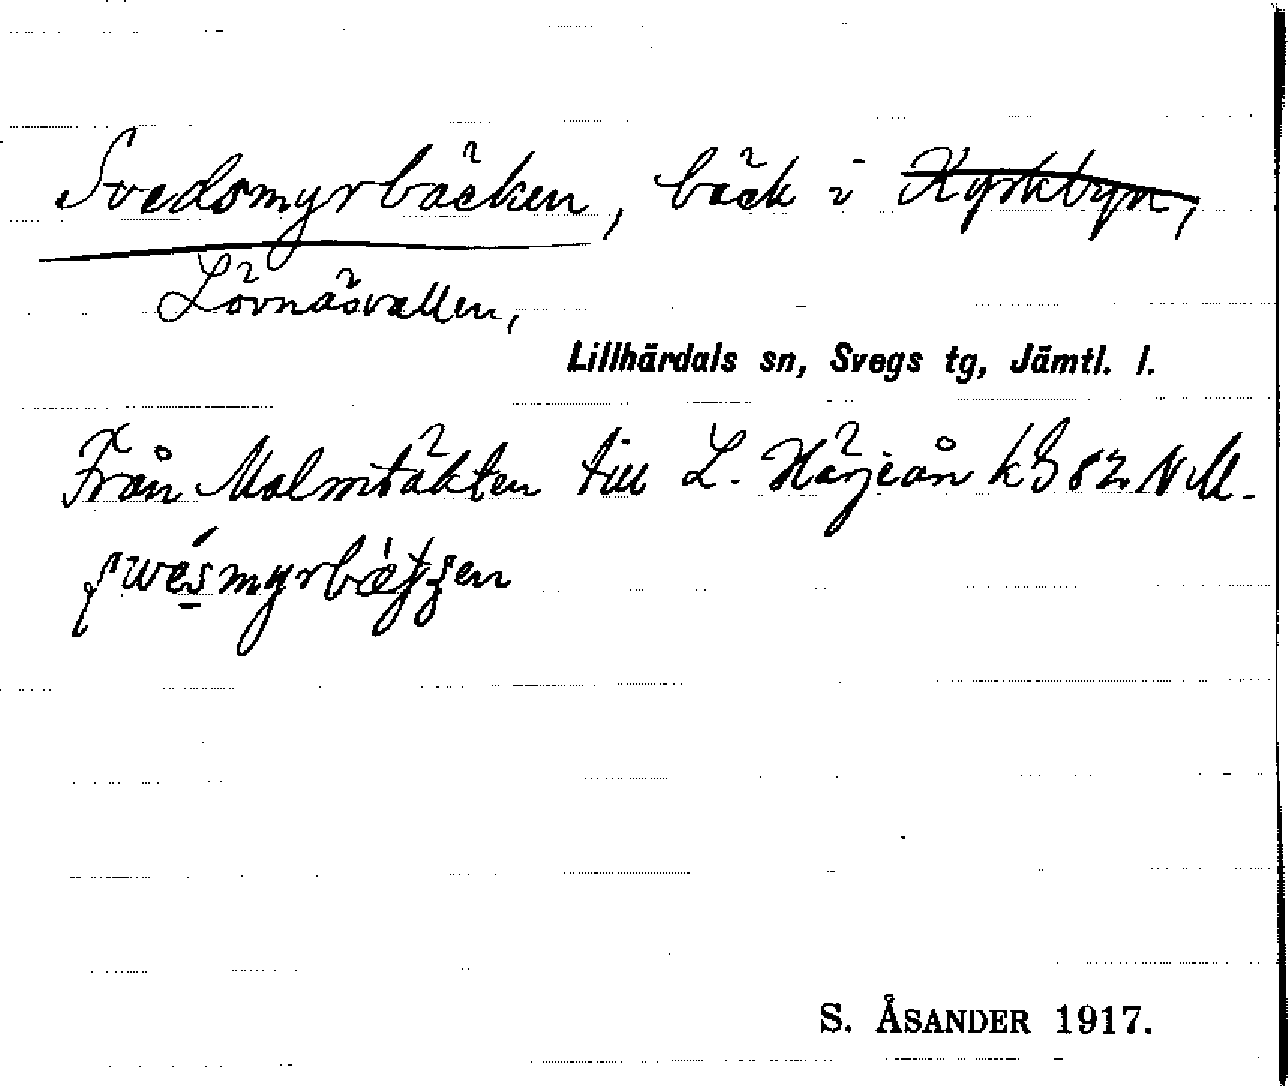 Svedsmyrbäcken, bäck i Kyrkbyn,
Lövnäsvallen,
Lillhärdals sn, Svegs tg, Jämtl. l.
Från Malmtäkten till L. Härjeån k 82 N M.
S. ÅSANDER 1917.